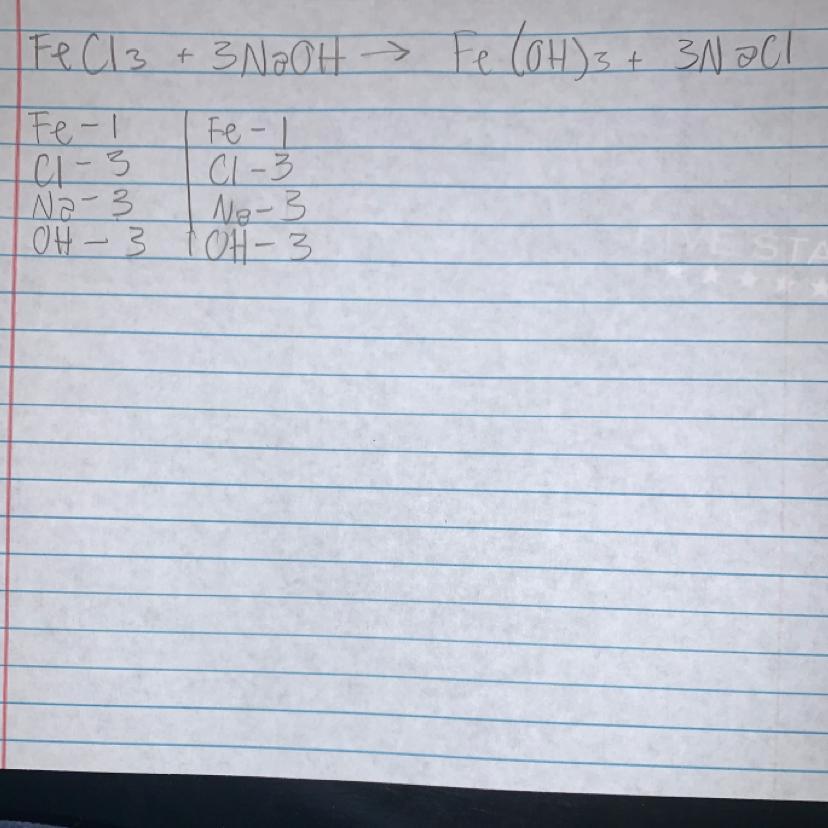 FeCl3 + 3NaOH → Fe(OH)3 + 3NaCl
Fe - 1 | Fe - 1
Cl - 3 | Cl - 3
Na - 3 | Na - 3
OH - 3 | OH - 3